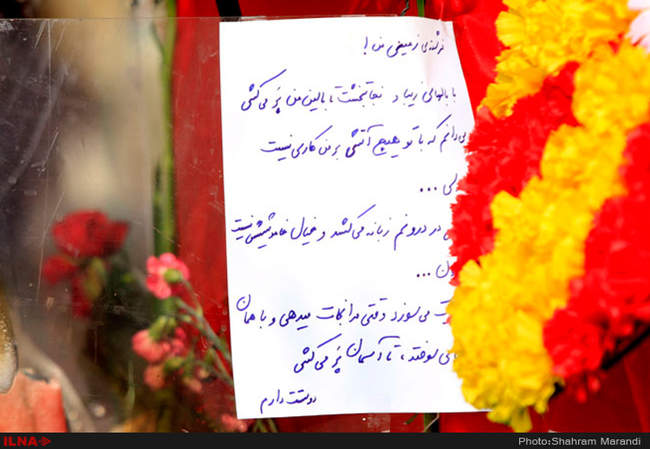 فرشته‌ی زمینی من !
با بالهای زیبا و نجاتبخشت تا بالین من پَر می‌کشی
می‌دانم که با تو هیچ آتشی بر من کاری نیست
ولی ...
در درونم زبانه می‌کشد و خیال خاموشیش نیست
...
می‌سوزد وقتی مرا نجات میدهی و با همان
سوخته ، تا آسمان پَر می‌کشی
دوستت دارم
ILNA
Photo:Shahram Marandi